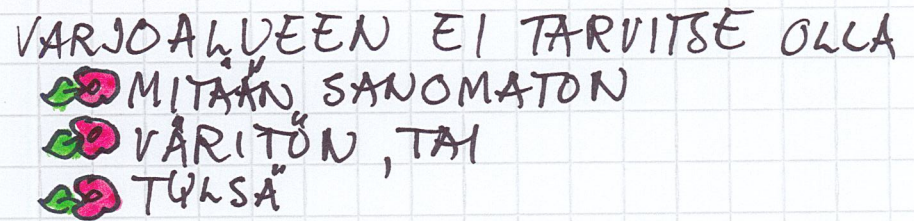 VARJOALUEEN EI TARVITSE OLLA
MITÄÄN SANOMATON
VÄRITÖN, TAI
TYLSÄ